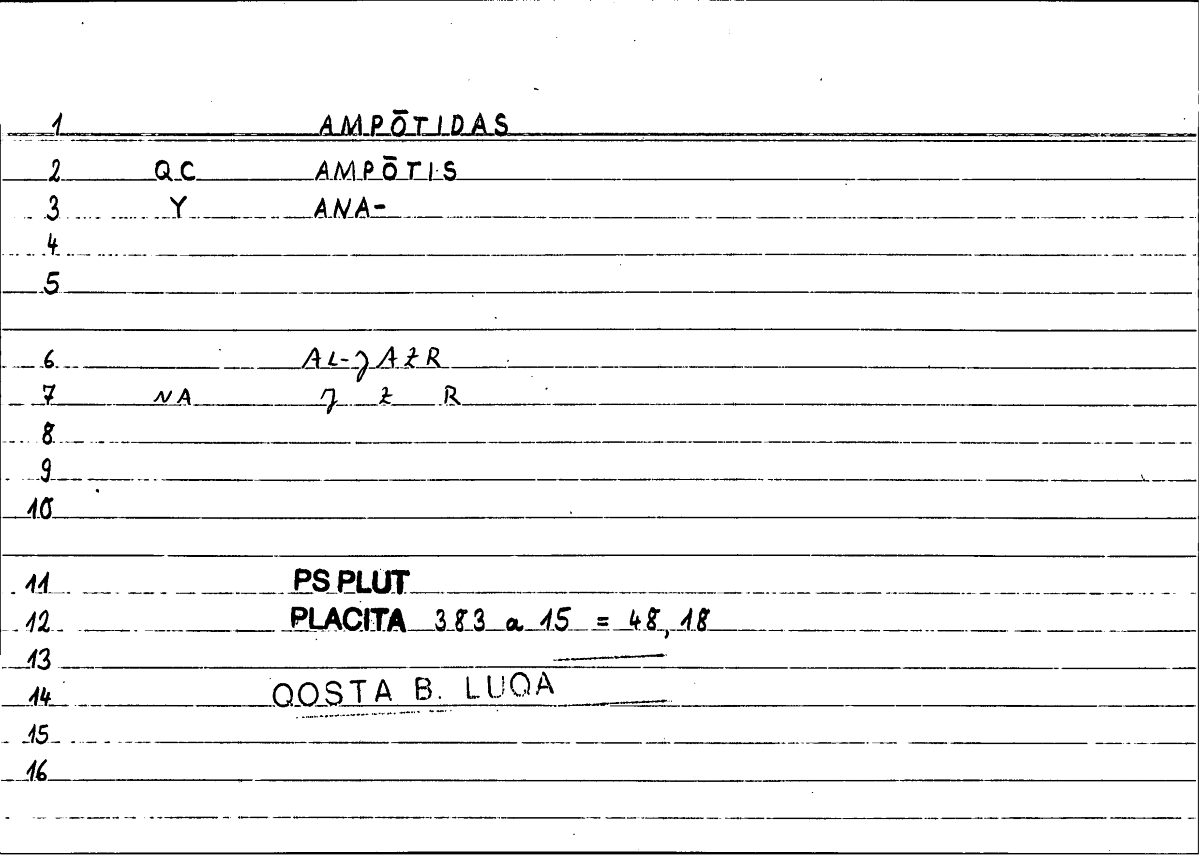 1 AMPŌTIDAS
2 QC AMPŌTIS
3 Y ANA-
4
5
6 AL-ʒAZR
7 NA ʒ Z R
8
9
10
11 PS PLUT
12 PLACITA 383 a 15 = 48,18
13
14 QOSTA B. LUQA
15
16